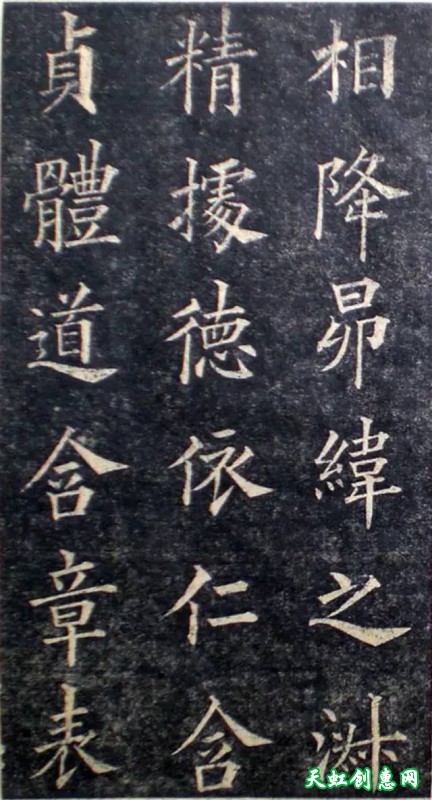 相降昴緯之淑
精據德依仁含
貞體道含章表
天虹创惠网